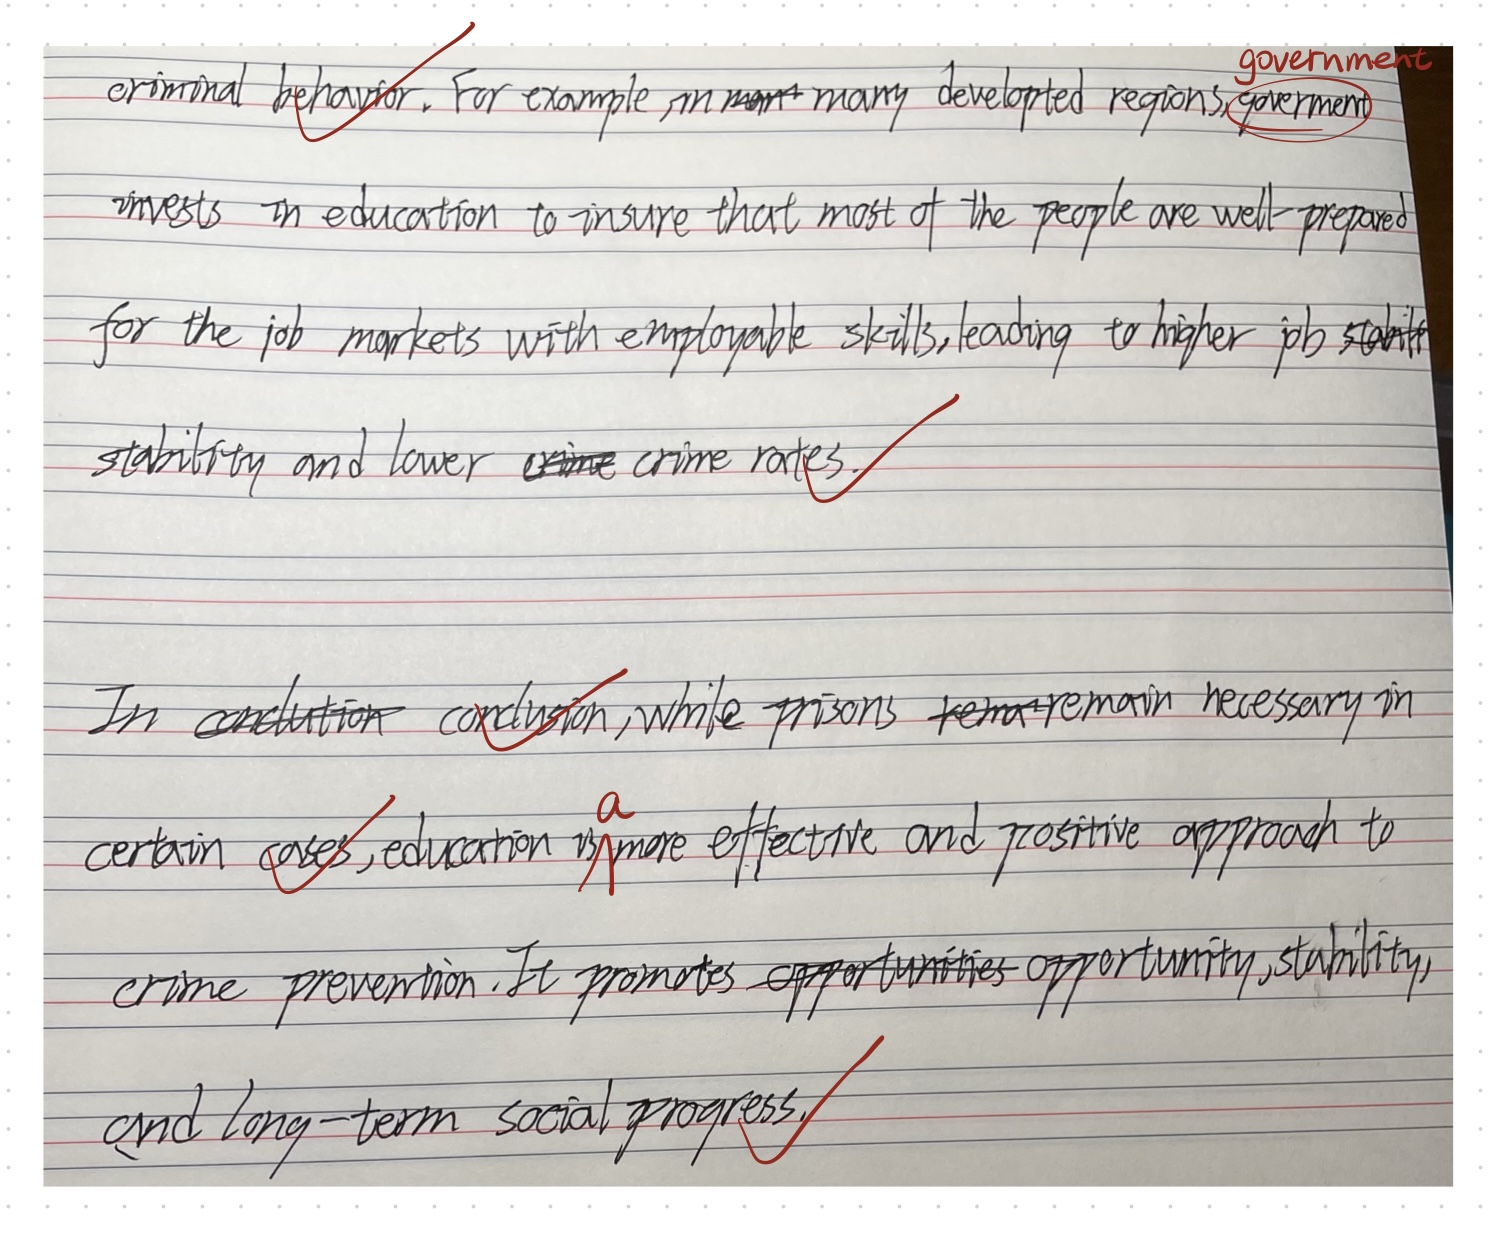 government
criminal behavior. For example, in many developted regions, goverment
invests in education to insure that most of the people are well-prepared
for the job markets with employable skills, leading to higher job
stability and lower crime crime rates.
In conclution conclusion, while prisons remain necessary in
a
certain cases, education is more effective and positive approach to
crime prevention. It promotes opportunities opportunity, stability,
and long-term social progress.